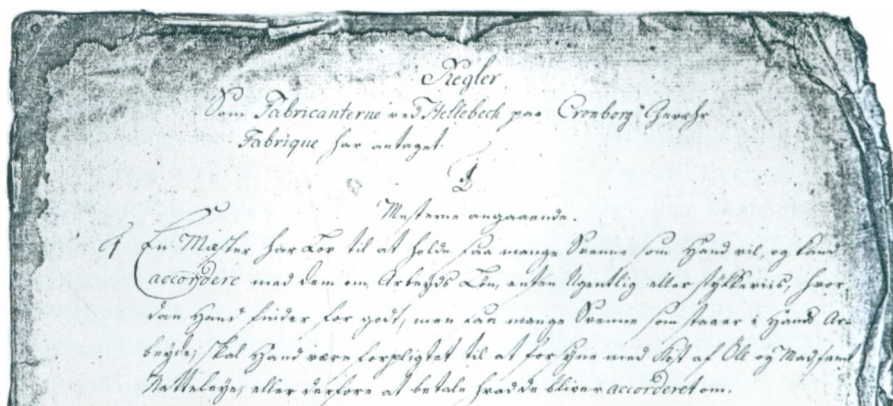 Regler
Som Fabricanterne ved Hellebeck paa Cronborg Geværhr
Fabrique har antaget
1
Mesterne angaaende.
En Mæster har Lov til at holde saa mange Svenne som Hand vil, og kand
accordere med dem om Arbeyds Løn, enten Ugentlig eller stykkeviis, hvor
dan Hand finder for godt, men saa mange Svenne som staaer i Hans Ar-
beyde, skal Hand være forpligtet til at forsyne med af Øll og
Natteleye, eller derfore at betale hvad de bliver accorderet om.